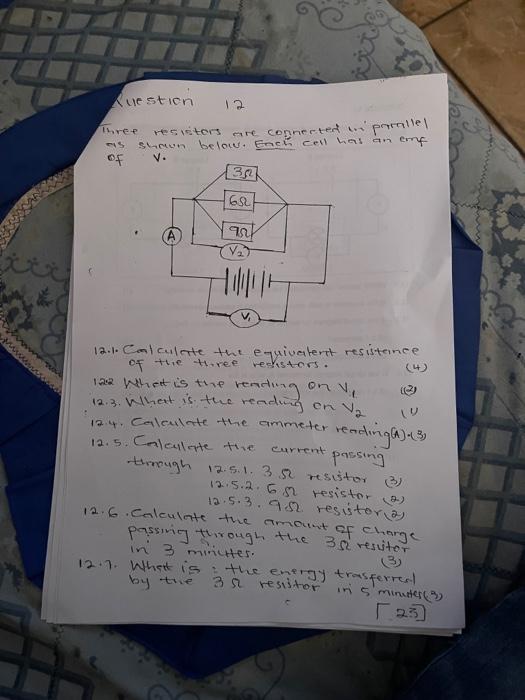 Question 12
Three resistors are connected in parallel
as shown below. Each cell has an emf
of V.
3Ω
6Ω
9Ω
A
V2
V1
12.1. Calculate the equivalent resistance
of the three resistors. (4)
12.2 What is the reading on V1 (2)
12.3. What is the reading on V2 (1)
12.4. Calculate the ammeter reading(A).(3)
12.5. Calculate the current passing
through 12.5.1. 3Ω resistor (3)
12.5.2. 6Ω resistor (2)
12.5.3. 9Ω resistor (2)
12.6. Calculate the amount of charge
passing through the 3Ω resitor
in 3 minuttes. (3)
12.7. What is : the energy trasferred
by the 3Ω resistor in 5 minutes(3)
[23]